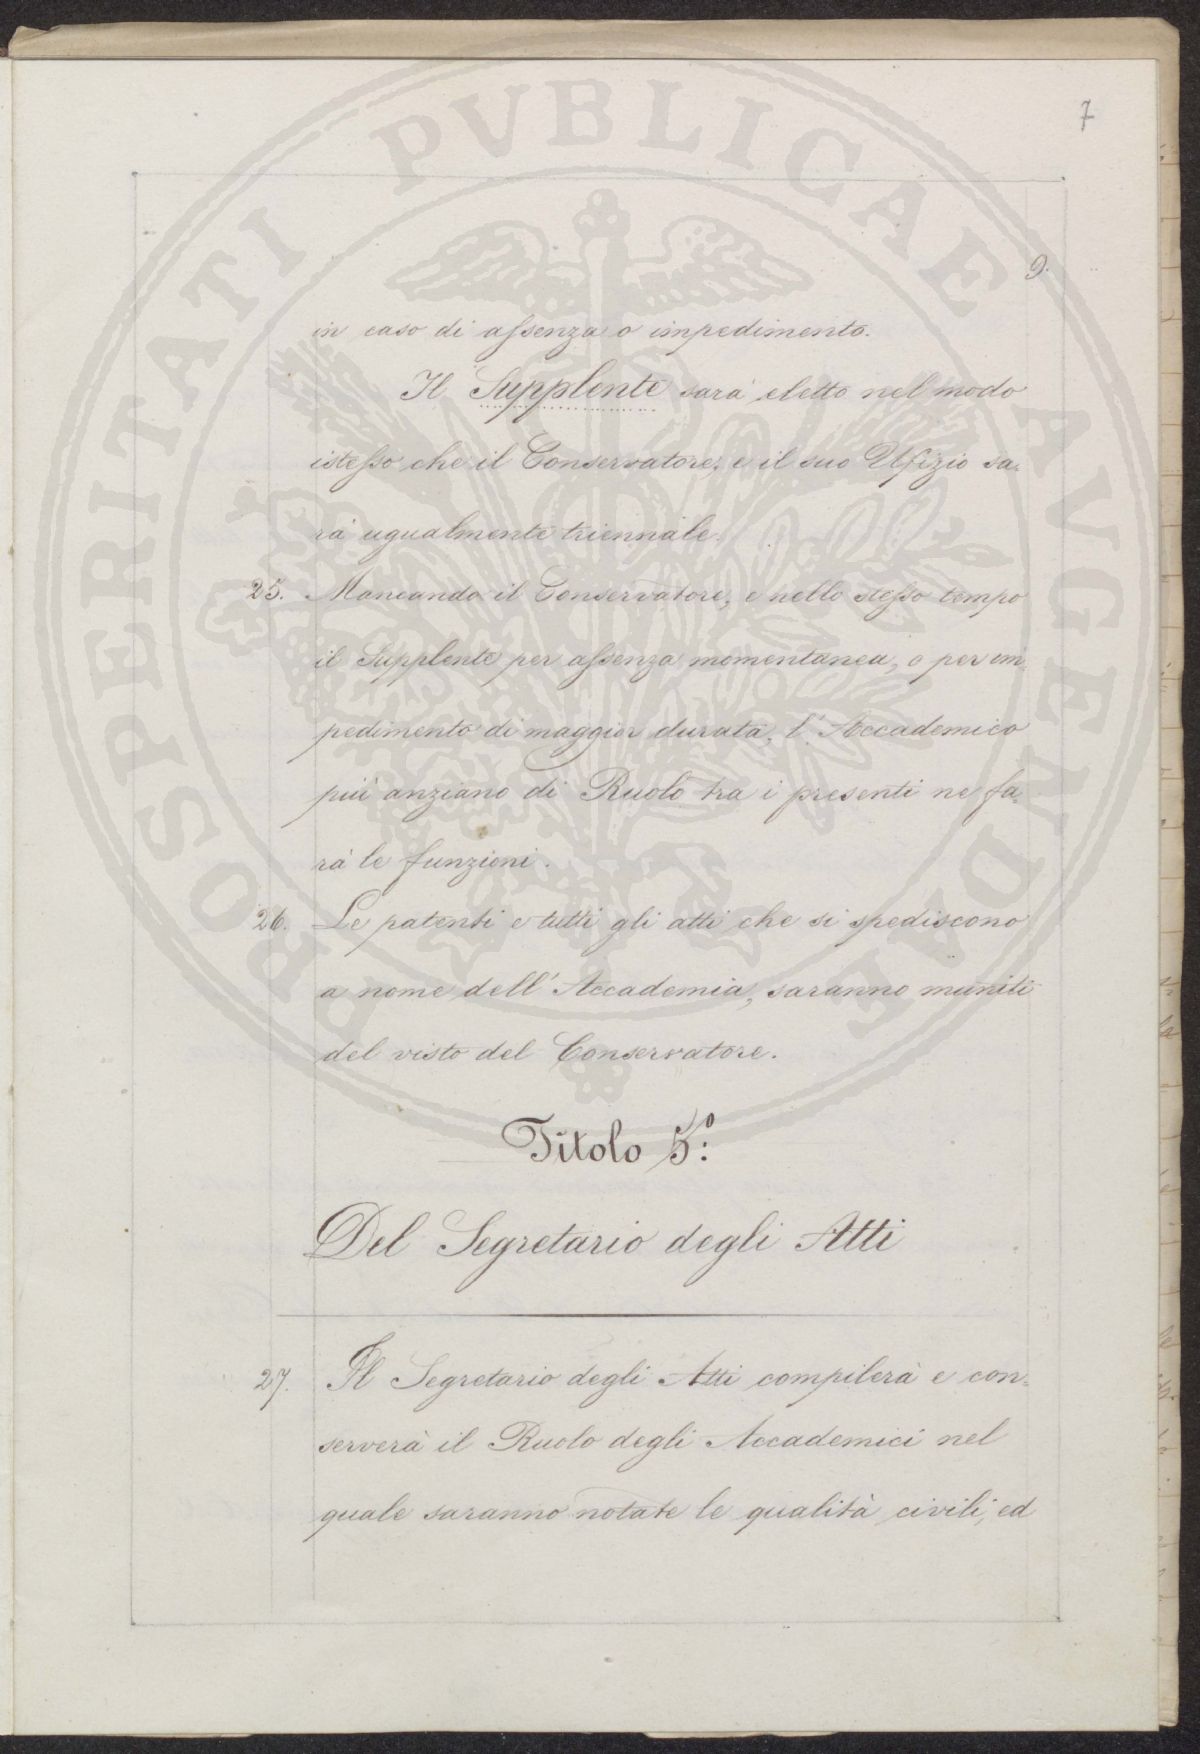 7
9.
in caso di assenza o impedimento.
Il Supplente sarà eletto nel modo
istesso che il Conservatore, e il suo Ufizio sa-
rà ugualmente triennale.
25. Mancando il Conservatore, e nello stesso tempo
il Supplente per assenza momentanea, o per im-
pedimento di maggior durata, l'Accademico
più anziano di Ruolo tra i presenti ne fa-
rà le funzioni.
26. Le patenti e tutti gli atti che si spediscono
a nome dell'Accademia, saranno muniti
del visto del Conservatore.
Titolo 5.º
Del Segretario degli Atti
27. Il Segretario degli Atti compilerà e con-
serverà il Ruolo degli Accademici nel
quale saranno notate le qualità civili, ed
PROSPERITATI PVBLICAE AVGENDAE